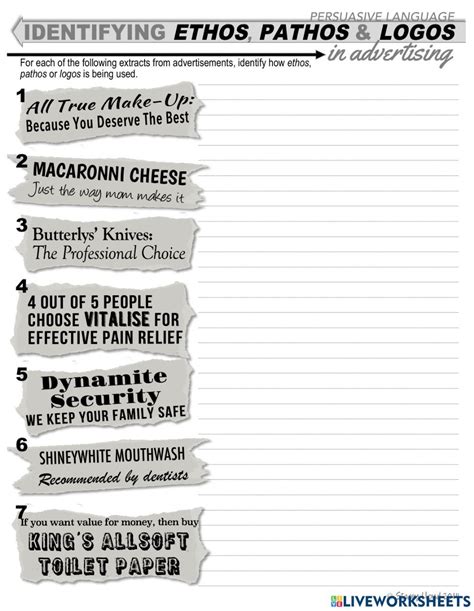 PERSUASIVE LANGUAGE
IDENTIFYING ETHOS, PATHOS & LOGOS
in advertising
For each of the following extracts from advertisements, identify how ethos,
pathos or logos is being used.
1
All True Make-Up:
Because You Deserve The Best
2
MACARONNI CHEESE
Just the way mom makes it
3
Butterlys' Knives:
The Professional Choice
4
4 OUT OF 5 PEOPLE
CHOOSE VITALISE FOR
EFFECTIVE PAIN RELIEF
5
Dynamite
Security
WE KEEP YOUR FAMILY SAFE
6
SHINEYWHITE MOUTHWASH
Recommended by dentists
7
If you want value for money, then buy
KING'S ALLSOFT
TOILET PAPER
©
LIVEWORKSHEETS